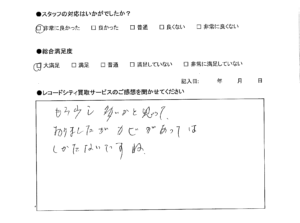 ●スタッフの対応はいかがでしたか？
□非常に良かった □良かった □普通 □良くない □非常に良くない
●総合満足度
□大満足 □満足 □普通 □満足していない □非常に満足していない
記入日: 年 月 日
●レコードシティ買取サービスのご感想を聞かせてください
もう少し多いかと思って
おりましたが カビがあっては
しかたないですね